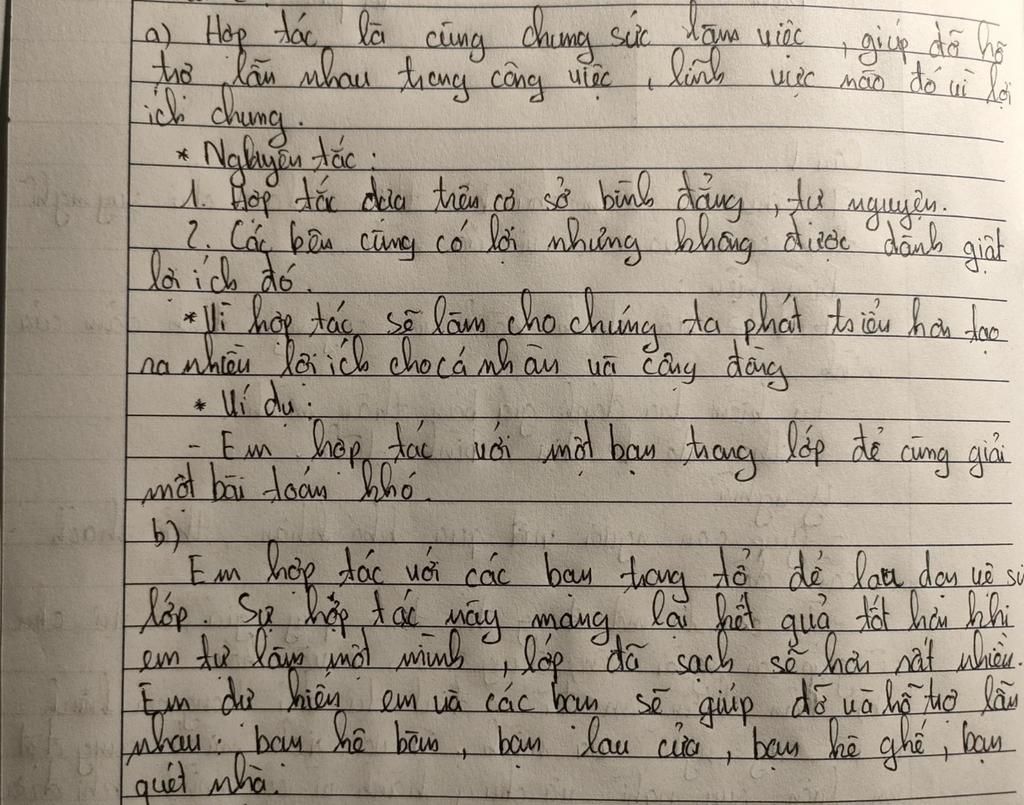 a) Hợp tác là cùng chung sức làm việc, giúp đỡ hỗ
trợ lẫn nhau trong công việc, lĩnh vực nào đó vì lợi
ích chung.
* Nguyên tắc:
1. Hợp tác dựa trên cơ sở bình đẳng, tự nguyện.
2. Các bên cùng có lợi nhưng không được dành giật
lợi ích đó.
* Vì hợp tác sẽ làm cho chúng ta phát triển hơn tạo
ra nhiều lợi ích cho cá nhân và công đồng
* Ví dụ:
- Em hợp tác với một bạn trong lớp để cùng giải
một bài toán khó.
b)
Em hợp tác với các bạn trong tổ để lau dọn vệ si
lớp. Sự hợp tác này mang lại kết quả tốt hơn khi
em tự làm một mình, lớp đã sạch sẽ hơn rất nhiều.
Em dự kiến em và các bạn sẽ giúp đỡ và hỗ trợ lẫn
nhau: bạn kê bàn, bạn lau cửa, bạn kê ghế, bạn
quét nhà.